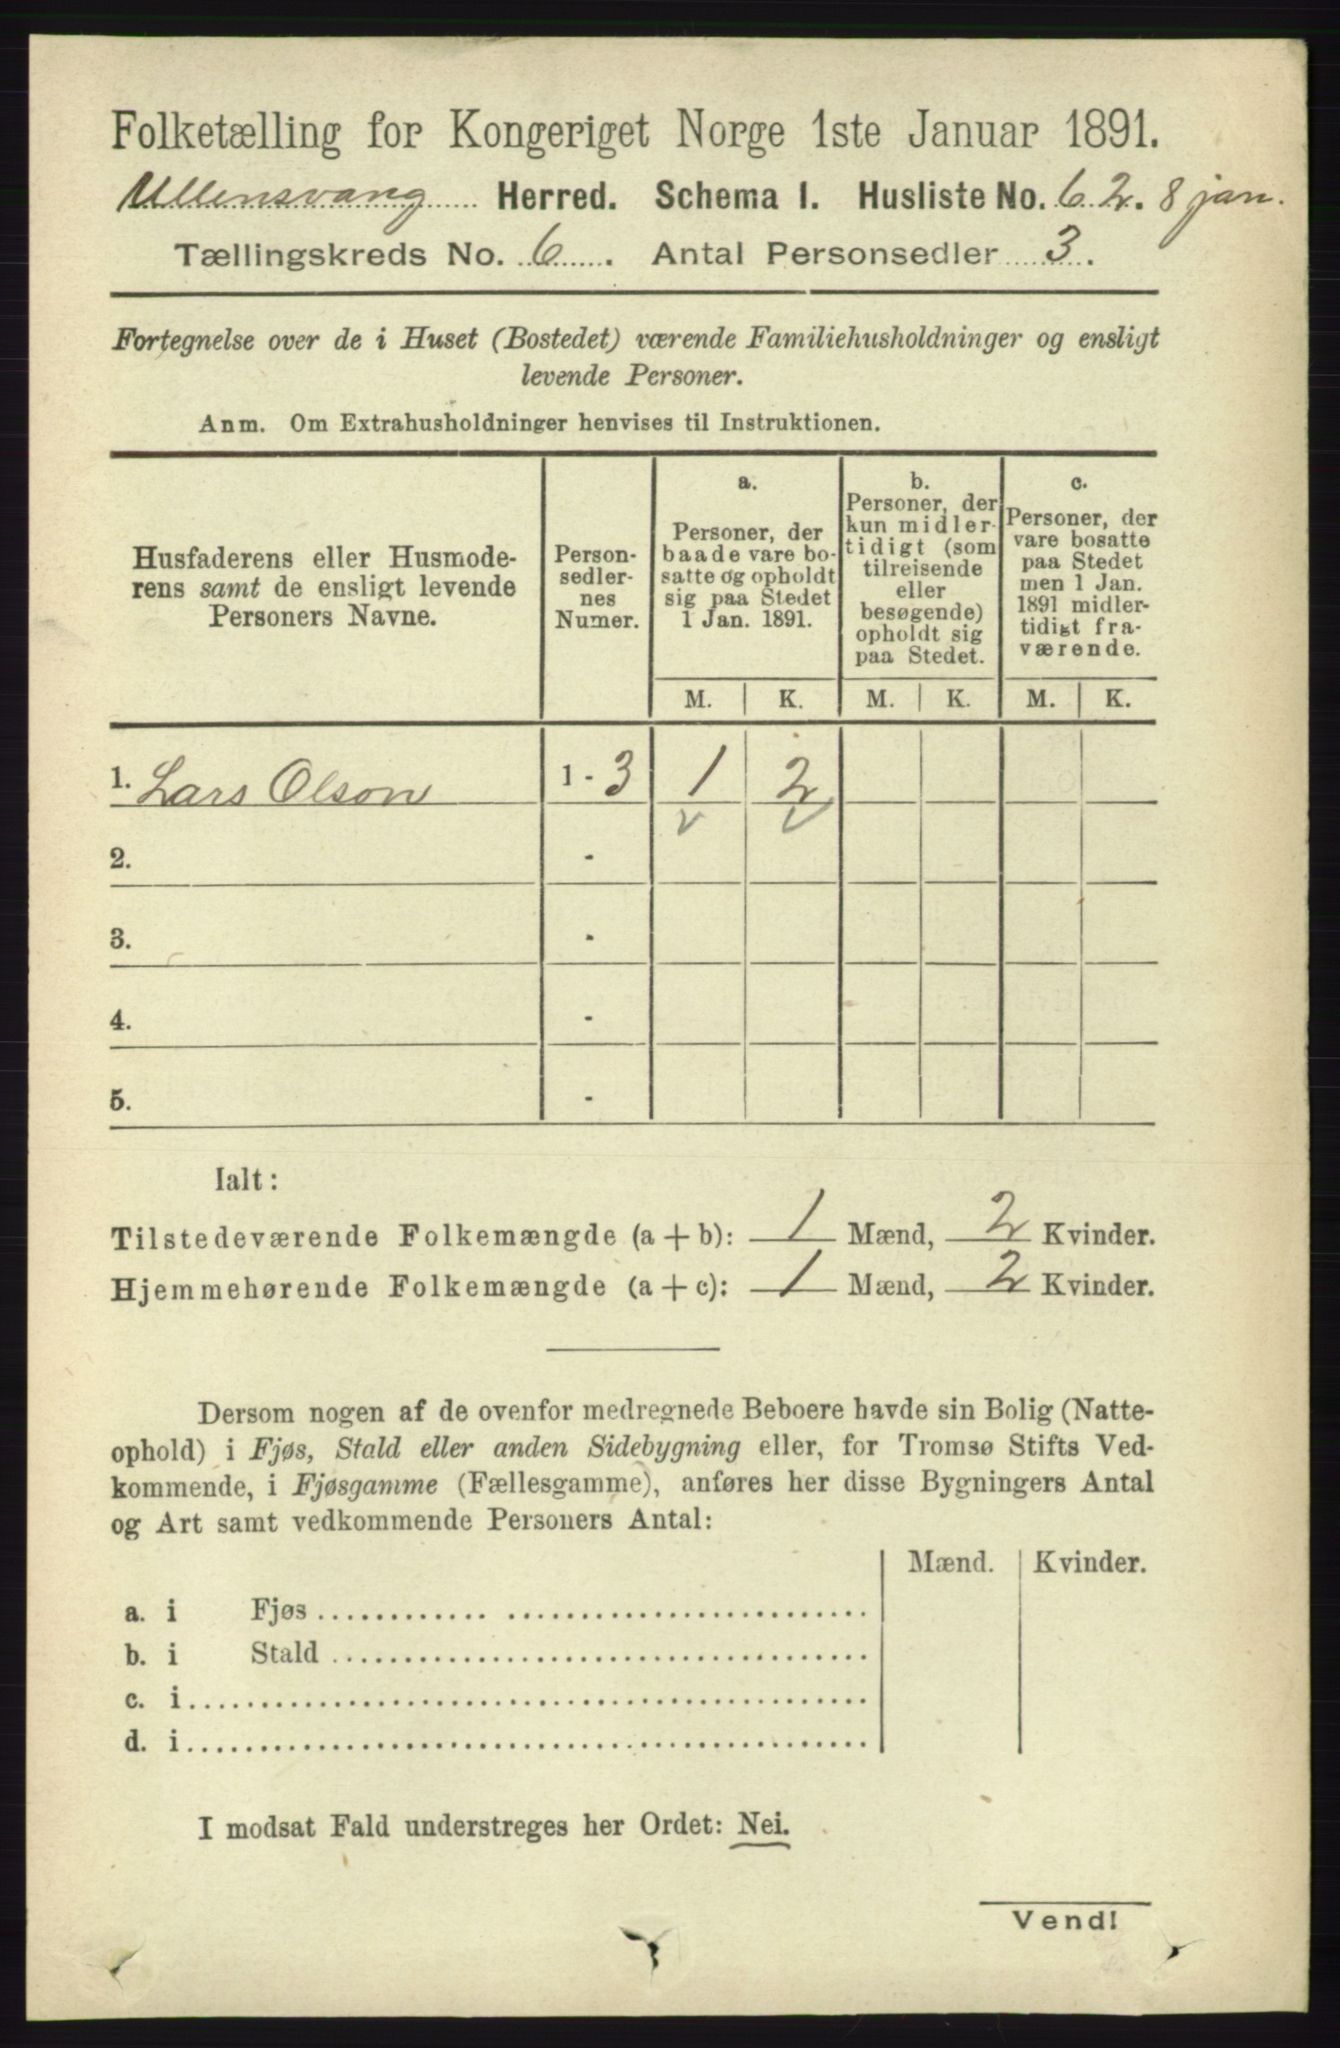 Folketælling for Kongeriget Norge 1ste Januar 1891.
Ullensvang Herred. Schema I. Husliste No. 62. 8 jan.
Tællingskreds No. 6. Antal Personsedler 3.
Fortegnelse over de i Huset (Bostedet) værende Familiehusholdninger og ensligt
levende Personer.
Anm. Om Extrahusholdninger henvises til Instruktionen.
Husfaderens eller Husmode-
rens samt de ensligt levende
Personers Navne.
Person-
sedler-
nes
Numer.
a.
Personer, der
baade vare bo-
satte og opholdt
sig paa Stedet
1 Jan. 1891.
b.
Personer, der
kun midler-
tidigt (som
tilreisende
eller
besøgende)
opholdt sig
paa Stedet.
c.
Personer, der
vare bosatte
paa Stedet
men 1 Jan.
1891 midler-
tidigt fra-
værende.
M. K. M. K. M. K.
1. Lars Olson 1 - 3 1 2
2. -
3. -
4. -
5. -
Ialt:
Tilstedeværende Folkemængde (a + b): 1 Mænd, 2 Kvinder.
Hjemmehørende Folkemængde (a + c): 1 Mænd, 2 Kvinder.
Dersom nogen af de ovenfor medregnede Beboere havde sin Bolig (Natte-
ophold) i Fjøs, Stald eller anden Sidebygning eller, for Tromsø Stifts Ved-
kommende, i Fjøsgamme (Fællesgamme), anføres her disse Bygningers Antal
og Art samt vedkommende Personers Antal:
Mænd. Kvinder.
a. i Fjøs
b. i Stald
c. i
d. i
I modsat Fald understreges her Ordet: Nei.
Vend!